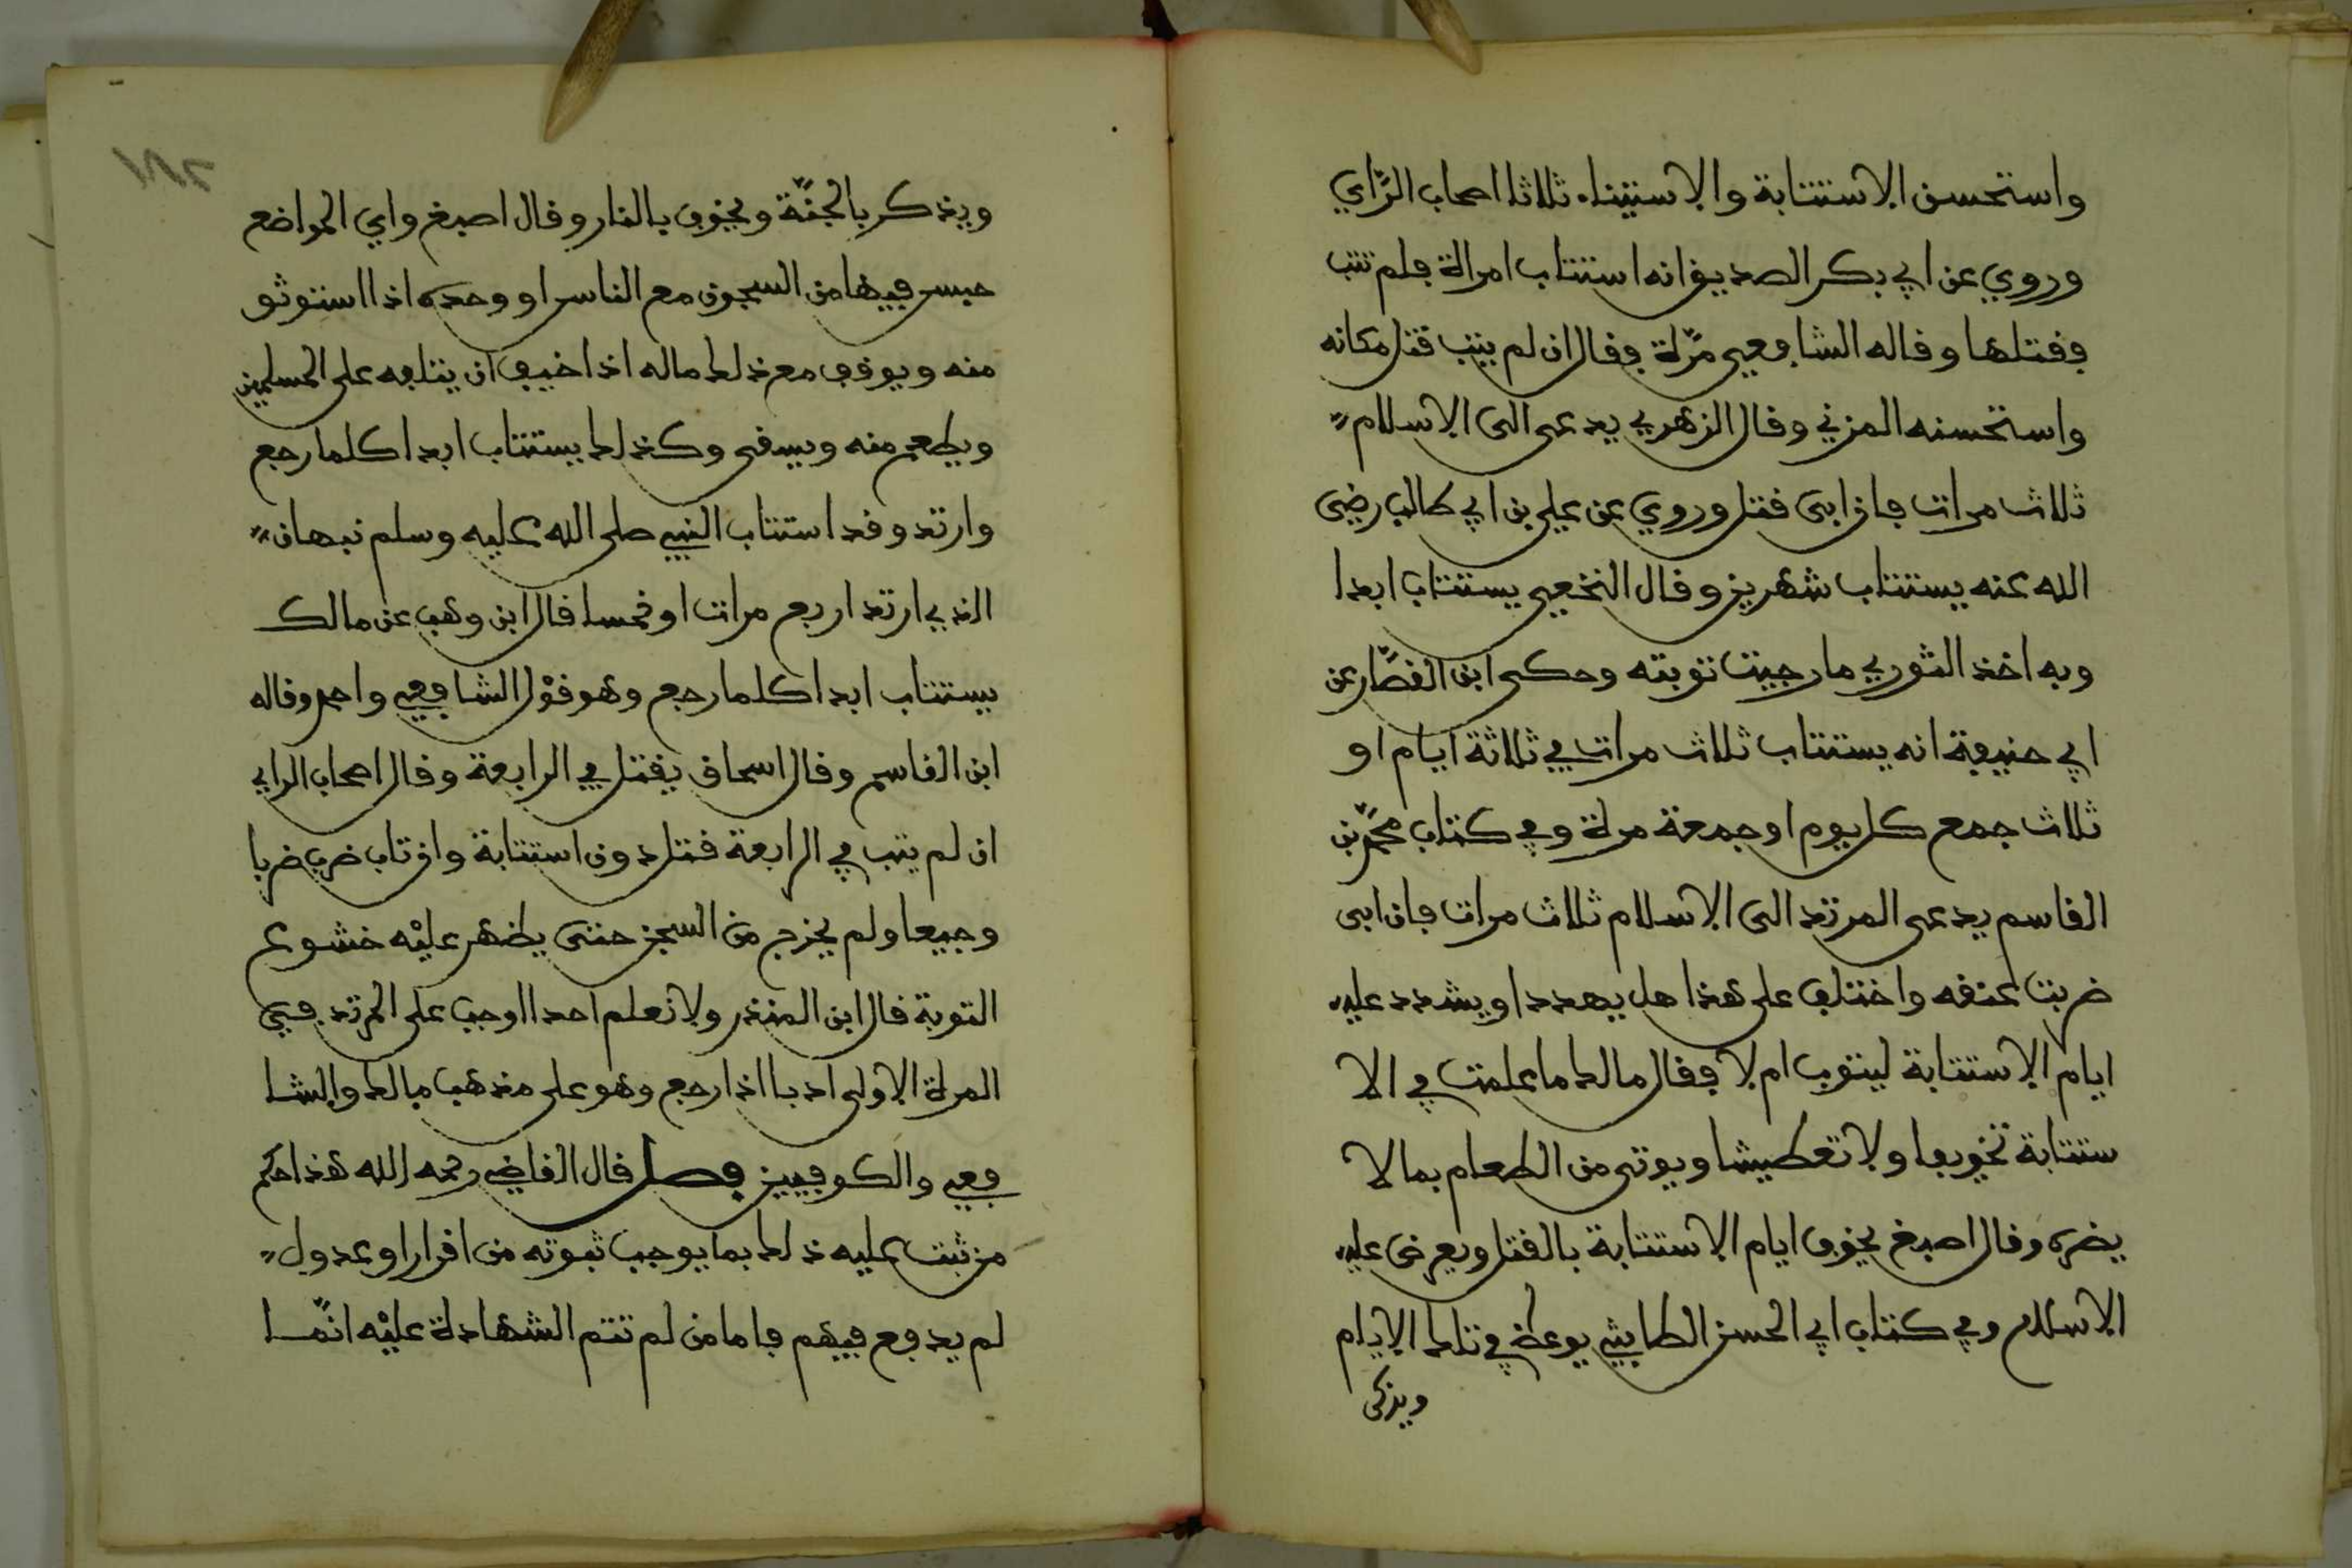 واستحسن الاستتابة والاستيناء ثلاثا اصحاب الرّاي
وروي عن ابي بكر الصديق انه استتاب امراة فلم تتب
فقتلها وقاله الشافعي مرّة فقال ان لم يتب قتل مكانه
واستحسنه المزني وقال الزهري يدعى الى الاسلام
ثلاث مرات فان ابى قتل وروي عن علي بن ابي طالب رضي
الله عنه يستتاب شهرين وقال النخعي يستتاب ابدا
وبه اخذ الثوري ما رجيت توبته وحكى ابن القصّار عن
ابي حنيفة انه يستتاب ثلاث مرات في ثلاثة ايام او
ثلاث جمع كل يوم او جمعة مرة وفي كتاب محمّد بن
القاسم يدعى المرتد الى الاسلام ثلاث مرات فان ابى
ضربت عنقه واختلف على هذا هل يهدد او يشدد عليه
ايام الاستتابة ليتوب ام لا فقال مالك ما علمت في الا
ستتابة تخويفا ولا تعطيشا ويوتى من الطعام بما لا
يضره وقال اصبغ يخوف ايام الاستتابة بالقتل ويعرض عليه
الاسلام وفي كتاب ابي الحسن الطابثي يوعظ في تلك الايام
ويذكر
ويذكر بالجنّة ويخوف بالنار وقال اصبغ واي المواضع
حبس فيها من السجون مع الناس او وحده اذا استوثق
منه ويوقف مع ذلك ماله اذا خيف ان يتلفه على المسلمين
ويطعم منه ويسقى وكذلك يستتاب ابدا كلما رجع
وارتد وقد استتاب النبي صلى الله عليه وسلم نبهان
الذي ارتد اربع مرات او خمسا قال ابن وهب عن مالك
يستتاب ابدا كلما رجع وهو قوْل الشافعي واحمد وقاله
ابن القاسم وقال اسحاق يقتل في الرابعة وقال اصحاب الراي
ان لم يتب في الرابعة قتل دون استتابة وان تاب ضرب ضربا
وجيعا ولم يخرج من السجن حتى يظهر عليْه خشوع
التوبة قال ابن المنذر ولا نعلم احدا اوجب على المرتد في
المرة الاولى ادبا اذا رجع وهو على مذهب مالك والشا
فعي والكوفيين فصل قال القاضي رحمه الله هذا حكم
من ثبت عليه ذلك بما يوجب ثبوته من اقرار او عدول
لم يدفع فيهم فاما من لم تتم الشهادة عليْه انّما